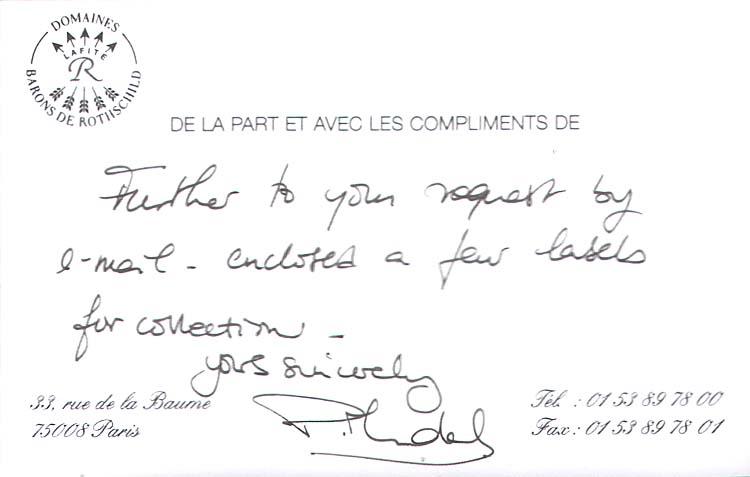 DOMAINES
LAFITE
R
BARONS DE ROTHSCHILD
DE LA PART ET AVEC LES COMPLIMENTS DE
Further to your request by
e-mail - enclosed a few labels
for collection -
yours sincerely
33, rue de la Baume
75008 Paris
Tél. : 01 53 89 78 00
Fax : 01 53 89 78 01